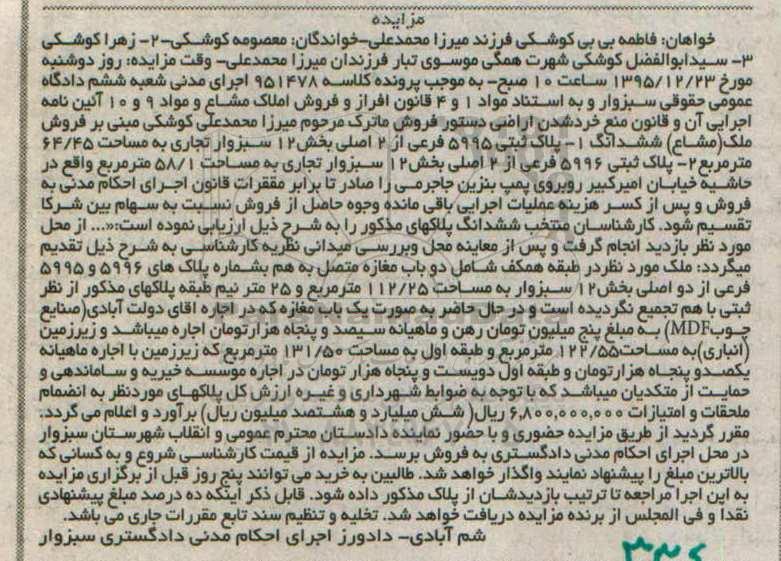 مزایده
خواهان: فاطمه بی بی کوشکی فرزند میرزا محمدعلی-خواندگان: معصومه کوشکی-۲- زهرا کوشکی
۳- سیدابوالفضل کوشکی شهرت همگی موسوی تبار فرزندان میرزا محمدعلی- وقت مزایده: روز دوشنبه
مورخ ۱۳۹۵/۱۲/۲۳ ساعت ۱۰ صبح- به موجب پرونده کلاسه ۹۵۱۴۷۸ اجرای مدنی شعبه ششم دادگاه
عمومی حقوقی سبزوار و به استناد مواد ۱ و ۴ قانون افراز و فروش املاک مشاع و مواد ۹ و ۱۰ آئین نامه
اجرایی آن و قانون منع خردشدن اراضی دستور فروش ماترک مرحوم میرزا محمدعلی کوشکی مبنی بر فروش
ملک(مشاع) ششدانگ ۱- پلاک ثبتی ۵۹۹۵ فرعی از ۲ اصلی بخش۱۲ سبزوار تجاری به مساحت ۶۴/۴۵
مترمربع۲- پلاک ثبتی ۵۹۹۶ فرعی از ۲ اصلی بخش۱۲ سبزوار تجاری به مساحت ۵۸/۱ مترمربع واقع در
حاشیه خیابان امیرکبیر روبروی پمپ بنزین جاجرمی را صادر تا برابر مققرات قانون اجرای احکام مدنی به
فروش و پس از کسر هزینه عملیات اجرایی باقی مانده وجوه حاصل از فروش نسبت به سهام بین شرکا
تقسیم شود. کارشناسان منتخب ششدانگ پلاکهای مذکور را به شرح ذیل ارزیابی نموده است:«... از محل
مورد نظر بازدید انجام گرفت و پس از معاینه محل وبررسی میدانی نظریه کارشناسی به شرح ذیل تقدیم
میگردد: ملک مورد نظردر طبقه همکف شامل دو باب مغازه متصل به هم بشماره پلاک های ۵۹۹۶ و ۵۹۹۵
فرعی از دو اصلی بخش۱۲ سبزوار به مساحت ۱۱۲/۲۵ مترمربع و ۲۵ متر نیم طبقه پلاکهای مذکور از نظر
ثبتی با هم تجمیع نگردیده است و در حال حاضر به صورت یک باب مغازه که در اجاره اقای دولت آبادی(صنایع
چوبMDF) به مبلغ پنج میلیون تومان رهن و ماهیانه سیصد و پنجاه هزارتومان اجاره میباشد و زیرزمین
(انباری)به مساحت۱۲۲/۵۵ مترمربع و طبقه اول به مساحت ۱۳۱/۵۰ مترمربع که زیرزمین با اجاره ماهیانه
یکصدو پنجاه هزارتومان و طبقه اول دویست و پنجاه هزار تومان در اجاره موسسه خیریه و ساماندهی و
حمایت از متکدیان میباشد که با توجه به ضوابط شهرداری و غیره ارزش کل پلاکهای موردنظر به انضمام
ملحقات و امتیازات ۶,۸۰۰,۰۰۰,۰۰۰ ریال( شش میلیارد و هشتصد میلیون ریال) برآورد و اعلام می گردد.
مقرر گردید از طریق مزایده حضوری و با حضور نماینده دادستان محترم عمومی و انقلاب شهرستان سبزوار
در محل اجرای احکام مدنی دادگستری به فروش برسد. مزایده از قیمت کارشناسی شروع و به کسانی که
بالاترین مبلغ را پیشنهاد نمایند واگذار خواهد شد. طالبین به خرید می توانند پنج روز قبل از برگزاری مزایده
به این اجرا مراجعه تا ترتیب بازدیدشان از پلاک مذکور داده شود. قابل ذکر اینکه ده درصد مبلغ پیشنهادی
نقدا و فی المجلس از برنده مزایده دریافت خواهد شد. تخلیه و تنظیم سند تابع مقررات جاری می باشد.
شم آبادی- دادورز اجرای احکام مدنی دادگستری سبزوار